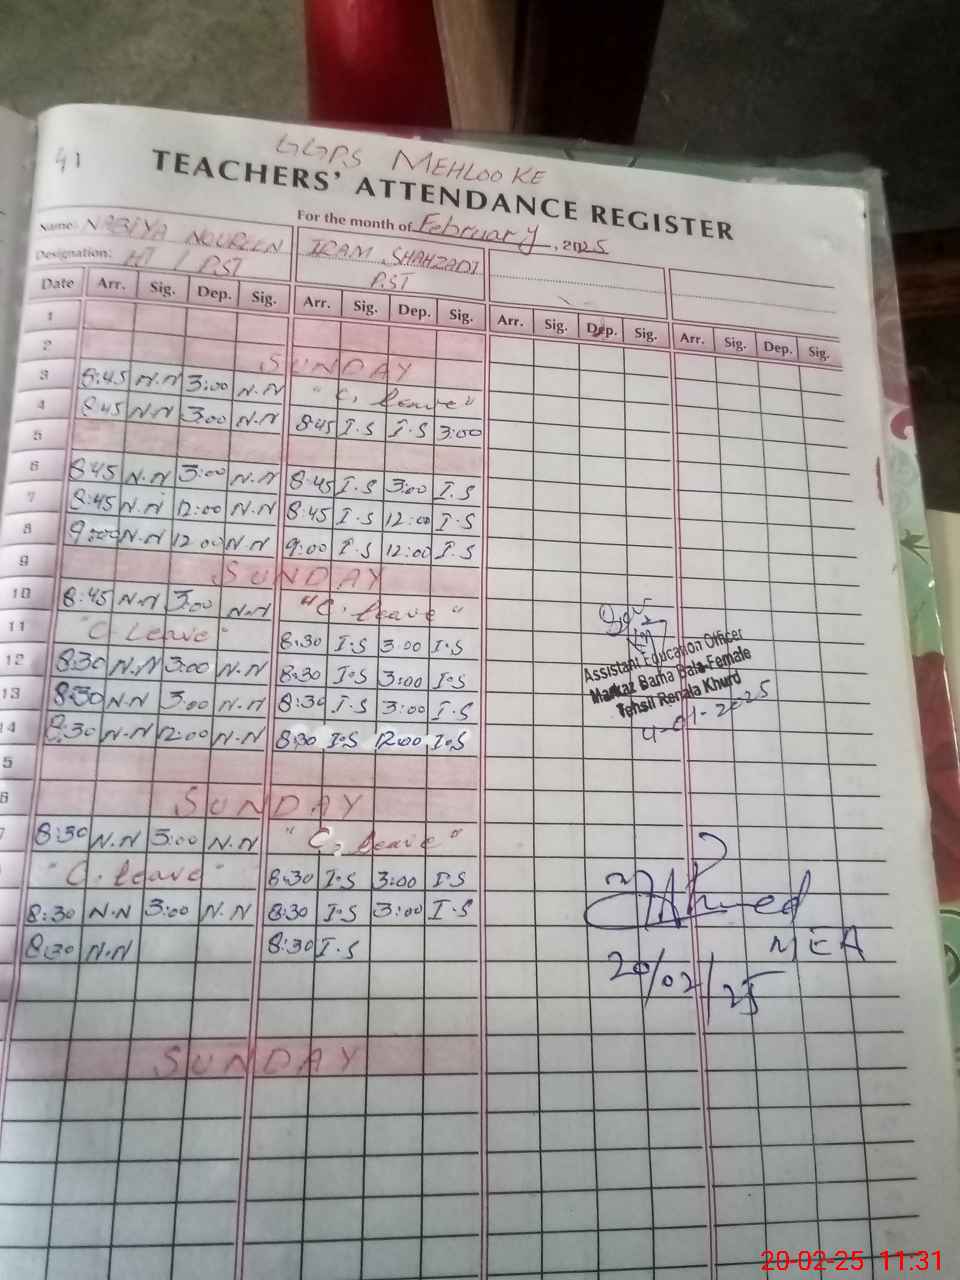 41
GGPS MEHLOOKE
TEACHERS' ATTENDANCE REGISTER
For the month of February, 2025
Name: NABIYA NOUREEN IRAM SHAHZADI
Designation: HT / PST PST
Date Arr. Sig. Dep. Sig. Arr. Sig. Dep. Sig. Arr. Sig. Dep. Sig. Arr. Sig. Dep. Sig.
1
2 SUNDAY
3 8:45 N.N 3:00 N.N "C. leave"
4 8:45 N.N 3:00 N.N 8:45 I.S I.S 3:00
5
6 8:45 N.N 3:00 N.N 8:45 I.S 3:00 I.S
7 8:45 N.N 12:00 N.N 8:45 I.S 12:00 I.S
8 9:00 N.N 12:00 N.N 9:00 I.S 12:00 I.S
9 SUNDAY
10 8:45 N.N 3:00 N.N "C. leave"
11 "C. Leave" 8:30 I.S 3:00 I.S
12 8:30 N.N 3:00 N.N 8:30 I.S 3:00 I.S
13 8:30 N.N 3:00 N.N 8:30 I.S 3:00 I.S
14 8:30 N.N 12:00 N.N 8:30 I.S 12:00 I.S
5
6 SUNDAY
7 8:30 N.N 3:00 N.N "C. leave"
"C. leave" 8:30 I.S 3:00 I.S
8:30 N.N 3:00 N.N 8:30 I.S 3:00 I.S
8:30 N.N 8:30 I.S
SUNDAY
Assistant Education Officer
Markaz Bama Bala-Female
Tehsil Renala Khurd
4-01-2025
Ahmed
MEA
20/02/25
20-02-25 11:31